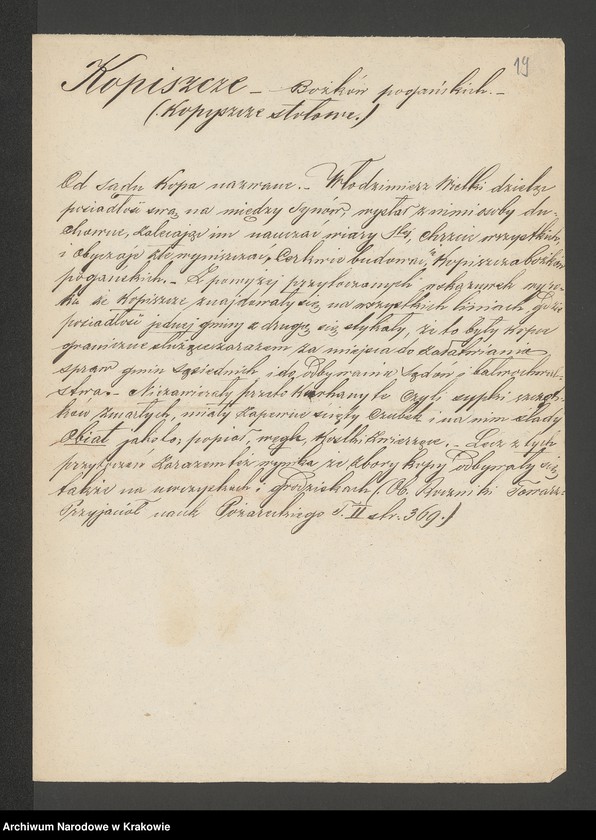 19
Kopiszcze – Bożków pogańskich. –
(Kopyszcze stołowe.)
Od sądu Kopa nazwane. – Włodzimierz Wielki dzieląc
posiadłość swą na między synów, wysłał z nimi osoby du-
chowne, zalecając im nauczać wiary Stéj, chrzcić wszystkich
i obyczaje złe wyniszczać, Cerkwie budować, Kopiszcza bożków
pogańskich. – Z powyżéj przytoczonych wskazówek wyni-
ka że Kopiszcze znajdowały się na wszystkich liniach, gdzie
posiadłości jednéj gminy z drugą się stykały, że to były Kopce
graniczne służące zarazem, za miejsca do załatwiania
spraw gmin sąsiednich i do odbywania sądów i bałwochwal-
stwa. – Niezawierały przeto Kurhany te czyli sypki szcząt-
ków zmarłych, miały zapewne ścięty czubek i na nim ślady
Obiat jako to, popiół, węgle, kostki zwierzęce, – Lecz z tych
przytoczeń zarazem téż wynika że zbory Kopy odbywały się
także na uroczyskach i grodziskach (Ob. Roczniki Towarz:
Przyjaciół nauk Poznańskiego T. II str. 369.)
Archiwum Narodowe w Krakowie